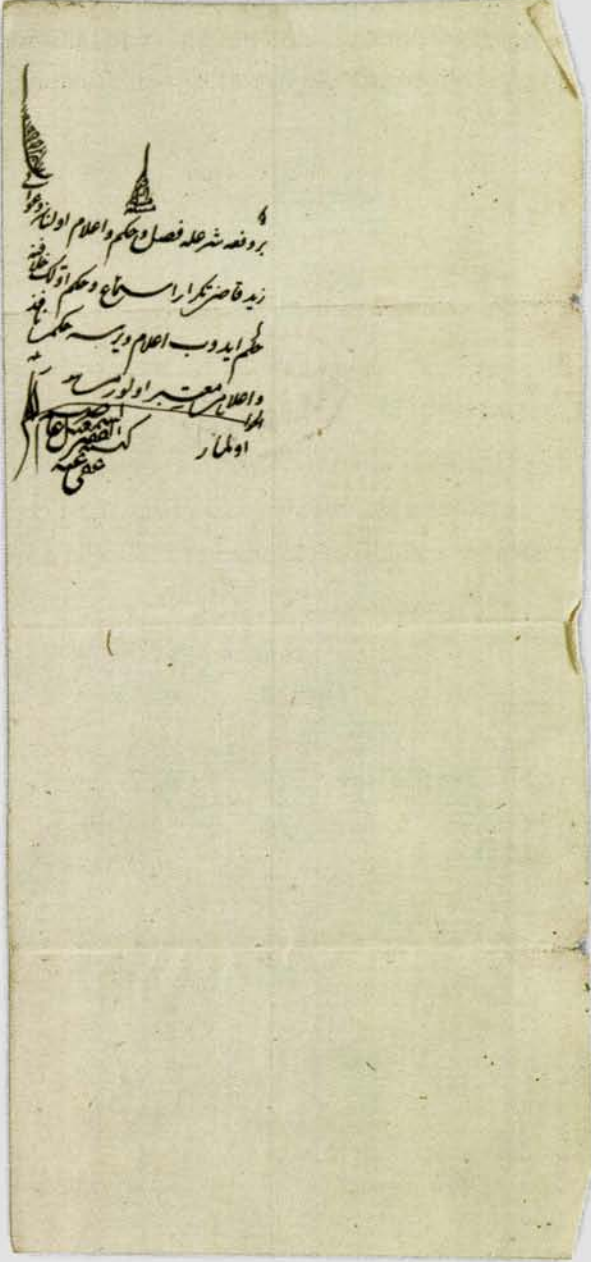 بر دفعه شرعله فصل و حكم و اعلام اولنان دعوايى
زيد قاضى تكرار استماع و حكم اولك خلافنه
حكم ايدوب اعلام ويرسه حكمى نافذ
و اعلامى معتبر اولورمى
الجواب
اولماز
كتبه الفقير اسمعيل عاصم
عفى عنه